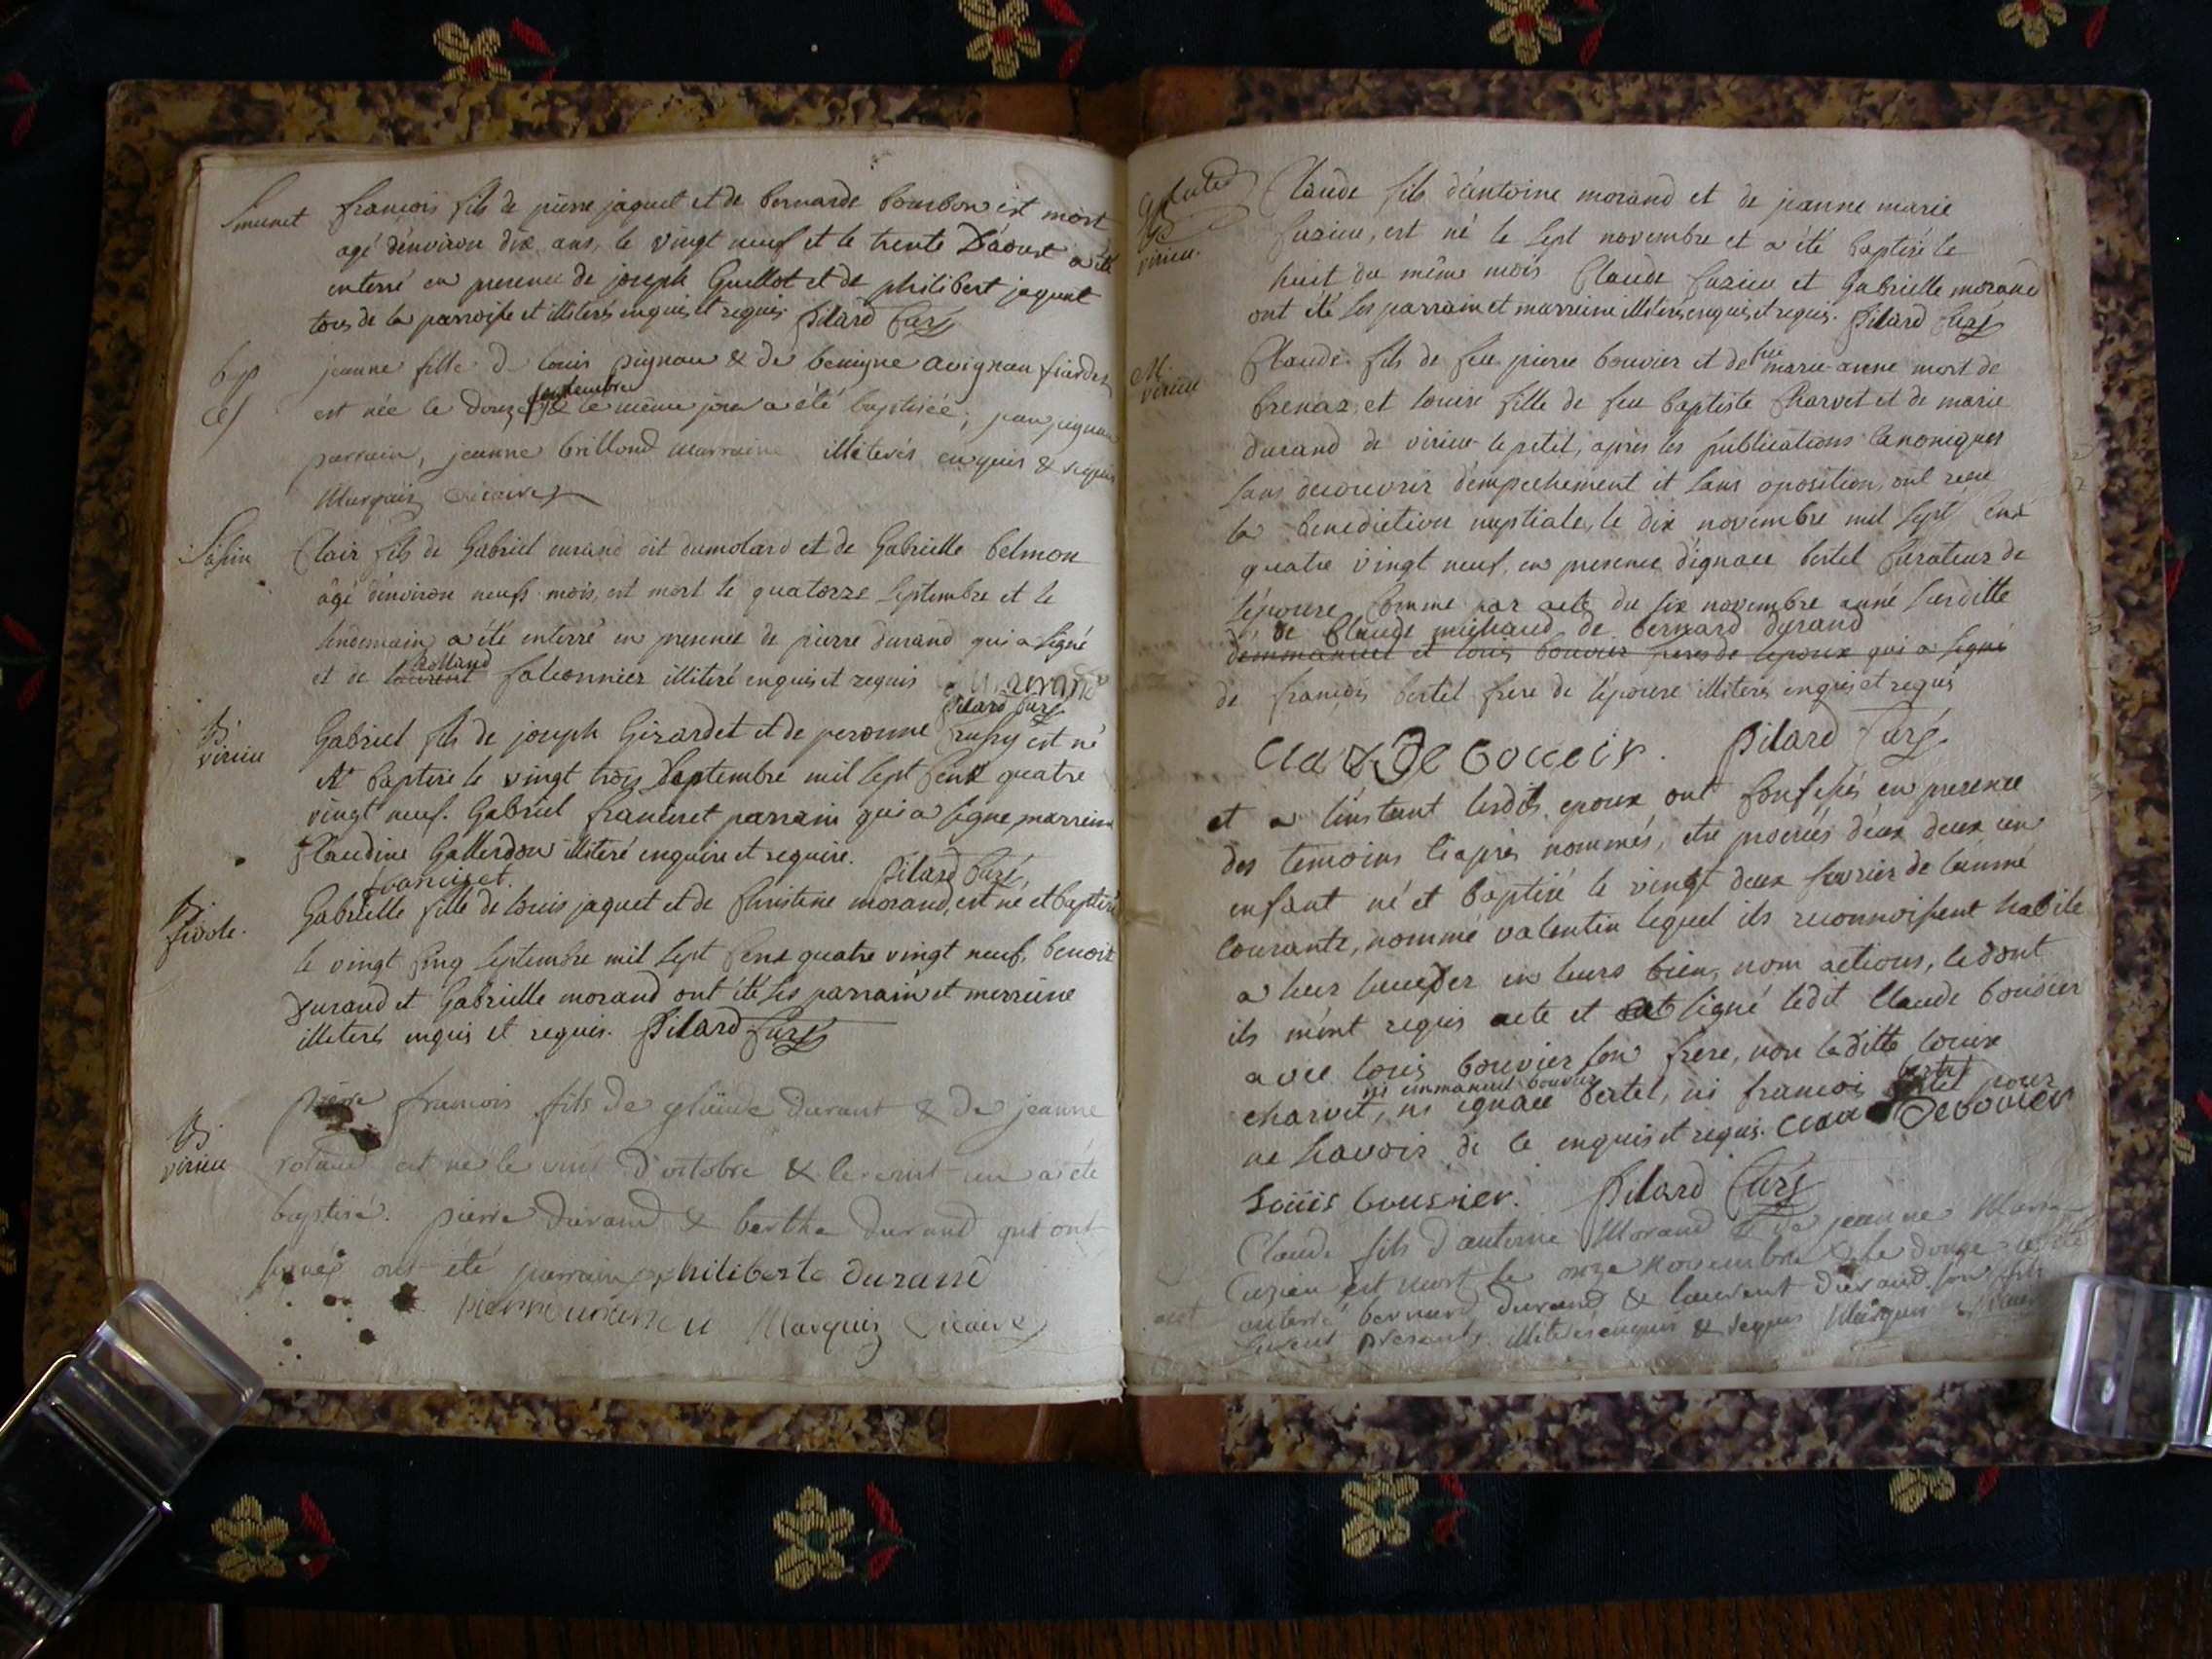 françois fils de pierre jaquet et de bernarde bourbon est mort
agé d'environ dix ans, le vingt neuf et le trente D'aoust a été
enterré en presence de joseph Guillot et de philibert jaquet
tous de la parroisse et illiterés enquis et requis Pilard Curé
jeanne fille de louis pignau & de benigne avignau
septembre
est née le douze & le même jour a été baptisée; jean pignau
parrain, jeanne brillond marraine illiterés enquis & requis
Marquis vicaire
Clair fils de Gabriel durand dit dumolard et de Gabrielle belmon
âgé d'environ neufs mois, est mort le quatorze Septembre et le
lendemain a été enterré en presence de pierre durand qui a signé
rolland
et de laurent falconnier illiteré enquis et requis
Pilard Curé
B
virieu
Gabriel fils de joseph Girardet et de peronne est né
et baptisé le vingt trois Septembre mil sept cent quatre
vingt neuf. Gabriel francinet parrain qui a signé, marreine
Claudine Gallerdon illiteré enquise et requise.
francinet. Pilard Curé
B
Gabrielle fille de louis jaquet et de Christine morand, est né et baptisé
le vingt cinq Septembre mil sept cent quatre vingt neuf, benoit
Durand et Gabrielle morand ont été ses parrain et marreine
illiterés enquis et requis. Pilard Curé
B
virieu
pierre francois fils de glaude durant & de jeanne
roland est né le vint d'octobre & le vint un a été
baptisé. pierre durand & berthe durand qui ont
signés ont été parrains philiberte durand
Marquis vicaire
virieu.
Claude fils d'antoine morand et de jeanne marie
Cuzieu, est né le sept novembre et a été baptisé le
huit du même mois Claude Cuzieu et Gabrielle morand
ont été ses parrain et marreine illiterés, enquis, et requis. Pilard Curé
M.
virieu
feue
Claude fils de feu pierre bouvier et de marie-anne mort de
brenaz, et louise fille de feu baptiste Charvet et de marie
durand de virieu-le petit, après les publications canoniques
sans decouvrir d'empechement et sans oposition, ont reçu
la benediction nuptiale, le dix novembre mil sept cent
quatre vingt neuf, en presence d'ignace bertet Curateur de
l'épouse comme par acte du six novembre anné susditte
de Claude michaud de bernard durand
d'emmanuel et louis bouvier freres de lepoux qui a signé
de françois bertet frere de l'épouse illiterés enquis et requis
Pilard Curé
et a l'instant lesdits epoux ont confessés en presence
des temoins ci après nommés, etre procréés d'eux deux un
enfant né et baptisé le vingt deux fevrier de l'année
courante, nommé valentin lequel ils reconnoissent habile
a leur succeder en leurs bien, nom actions, le dont
ils m'ont requis acte et ont signé ledit Claude bouvier
avec louis bouvier son frere, non laditte louise
ni emmanuel bouvier
charvet, ni ignace bertet, ni françois bertet pour
ne scavoir de ce enquis et requis.
Louis bouvier. Pilard Curé
Claude fils d'antoine Morand & de jeanne Marie
Cuzieu est mort le onze novembre & le douze a été
enterré bernard durand & laurent durand son fils
furent presents illiterés enquis & requis Marquis vicaire